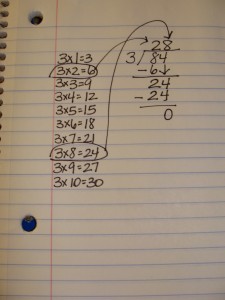 3x1=3
3x2=6
3x3=9
3x4=12
3x5=15
3x6=18
3x7=21
3x8=24
3x9=27
3x10=30
28
3/84
-6
24
-24
0